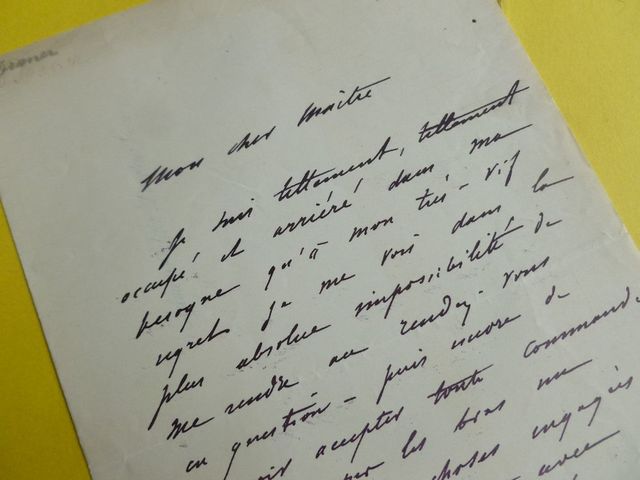 Mon cher Maître
Je suis tellement, tellement
occupé, et arriéré dans ma
besogne qu'à mon très-vif
regret je me vois dans la
plus absolue impossibilité de
me rendre au rendez-vous
en question - puis encore de
accepter toute command
les bras
choses engagées
avec